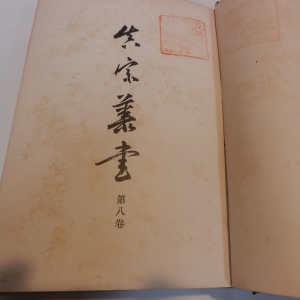 真宗叢書
第八卷